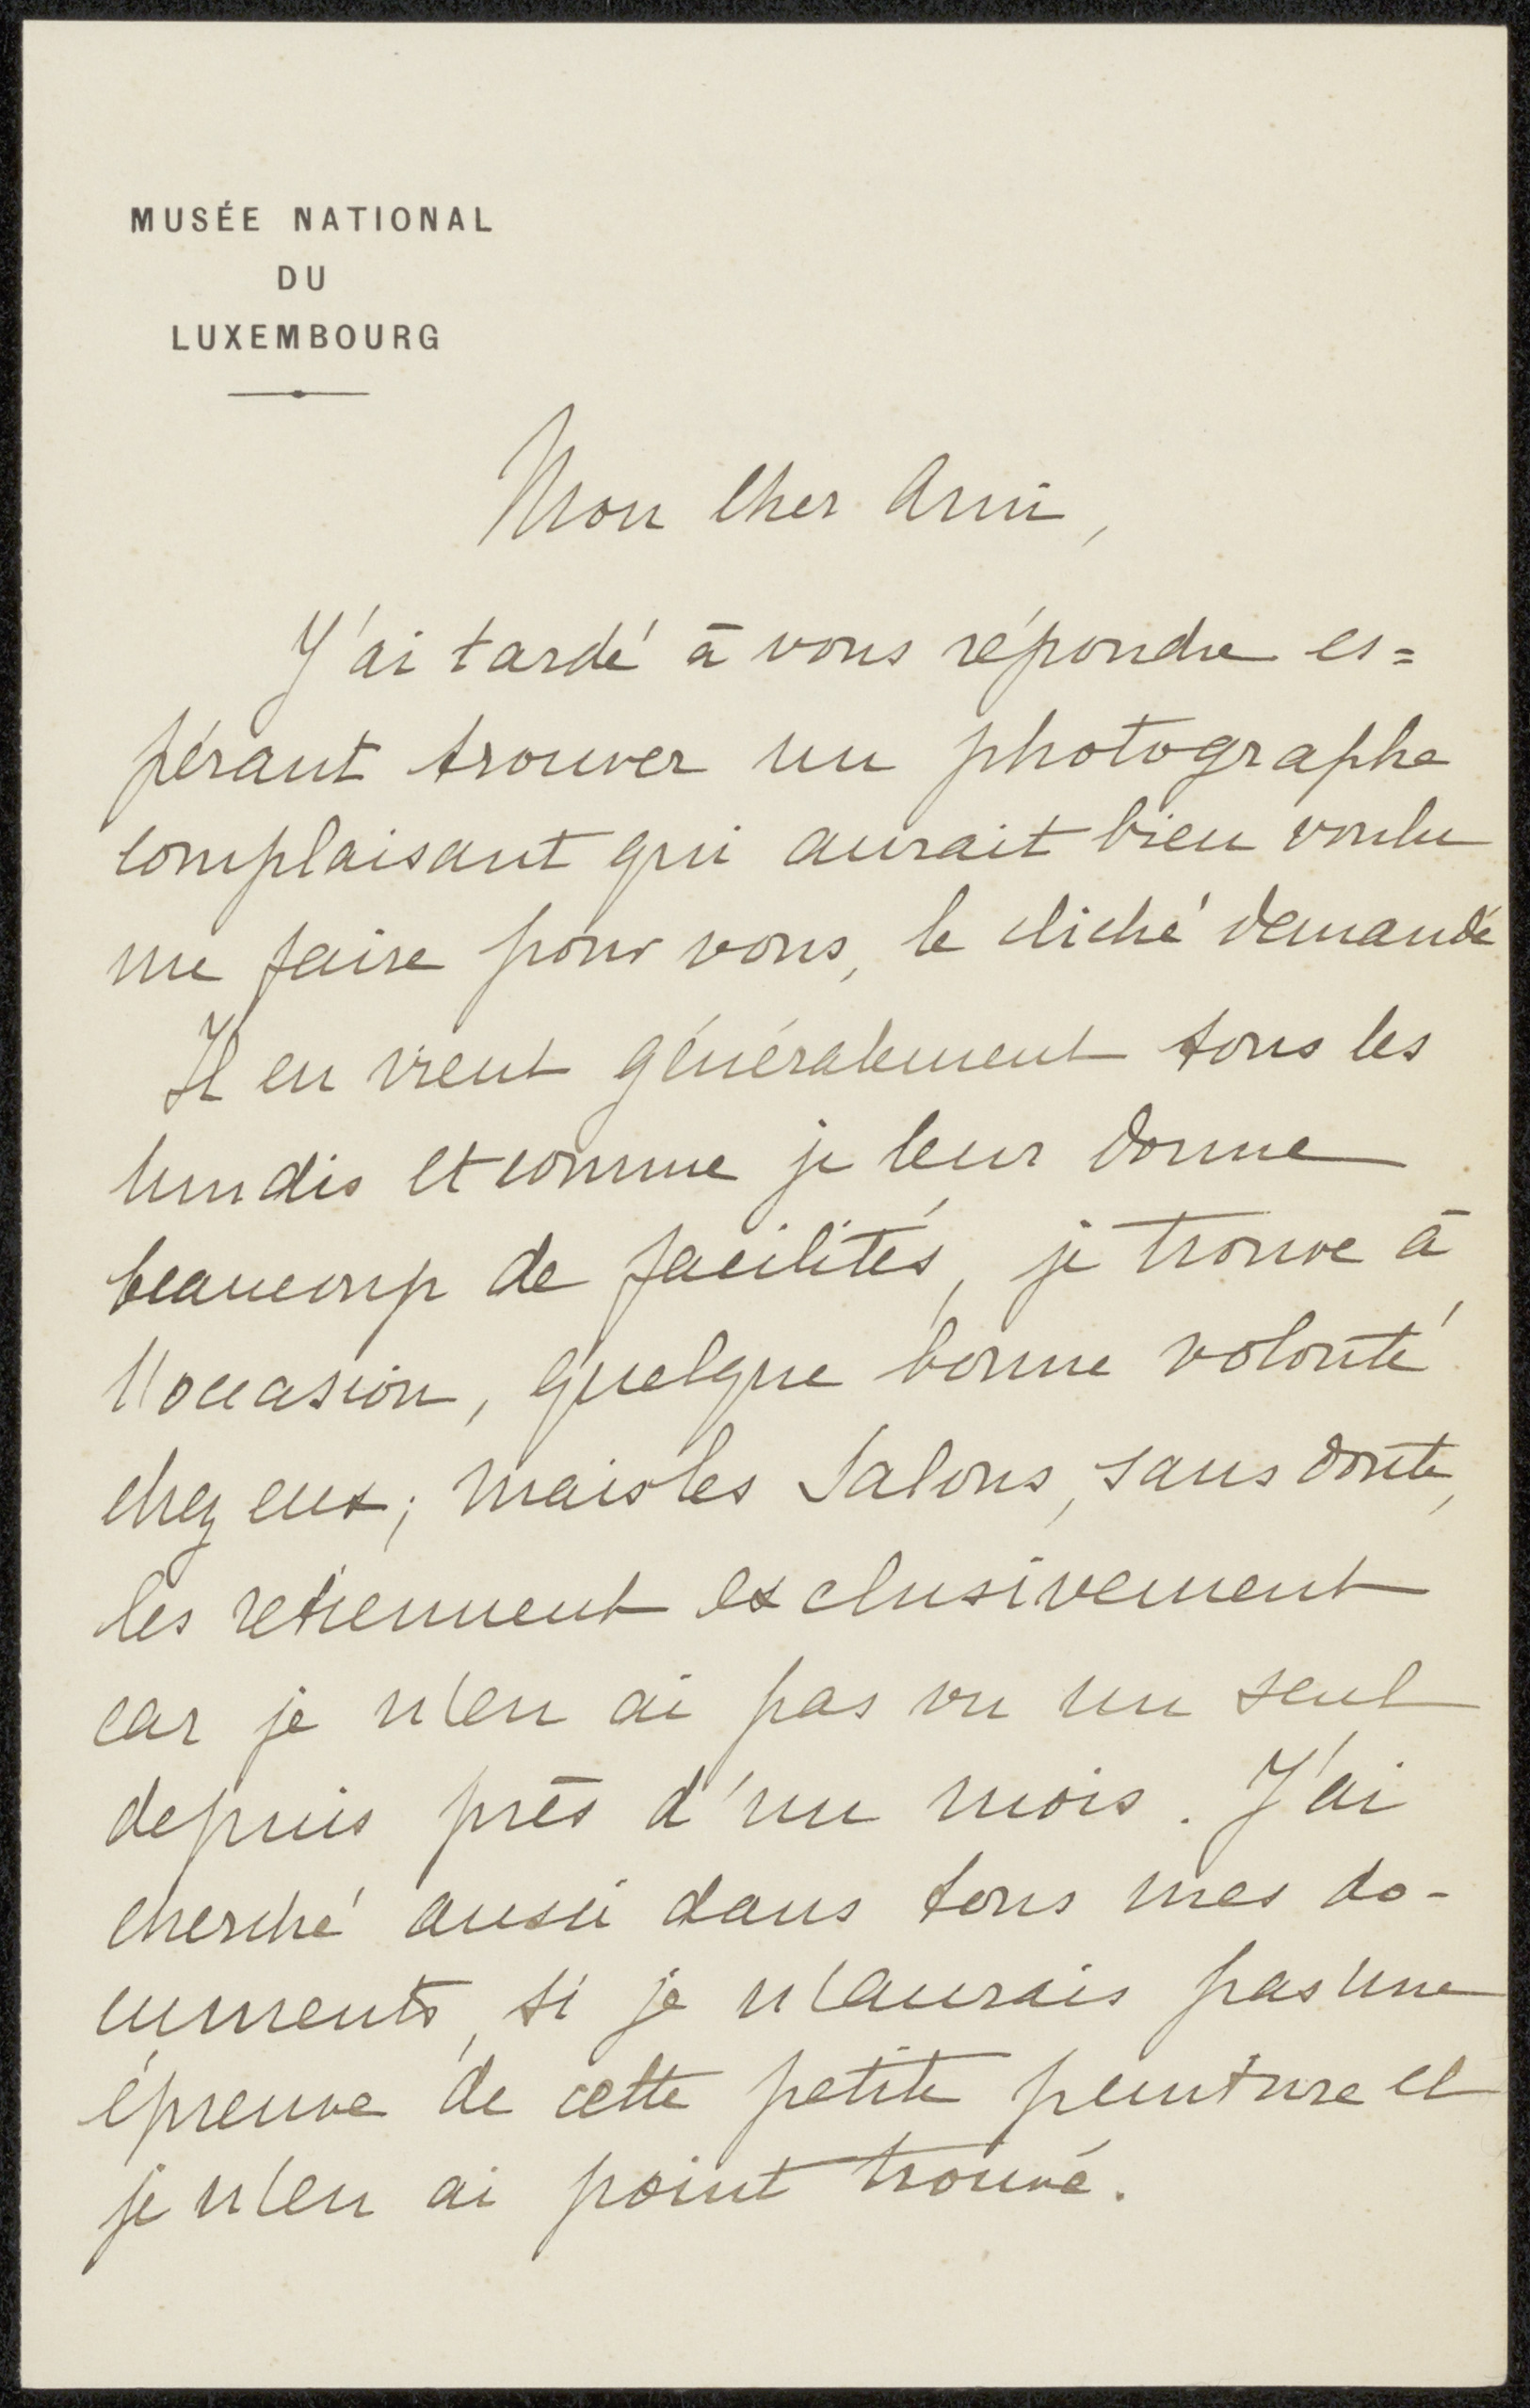 MUSÉE NATIONAL
DU
LUXEMBOURG
Mon cher Ami,
J'ai tardé à vous répondre es=
pérant trouver un photographe
complaisant qui aurait bien voulu
me faire pour vous, le cliché demandé
Il en vient généralement tous les
lundis et comme je leur donne
beaucoup de facilités, je trouve à
l'occasion, quelque bonne volonté
chez eux; mais les Salons, sans doute,
les retiennent exclusivement
car je n'en ai pas vu un seul
depuis près d'un mois. J'ai
cherché aussi dans tous mes do-
cuments, si je n'aurais pas une
épreuve de cette petite peinture et
je n'en ai point trouvé.